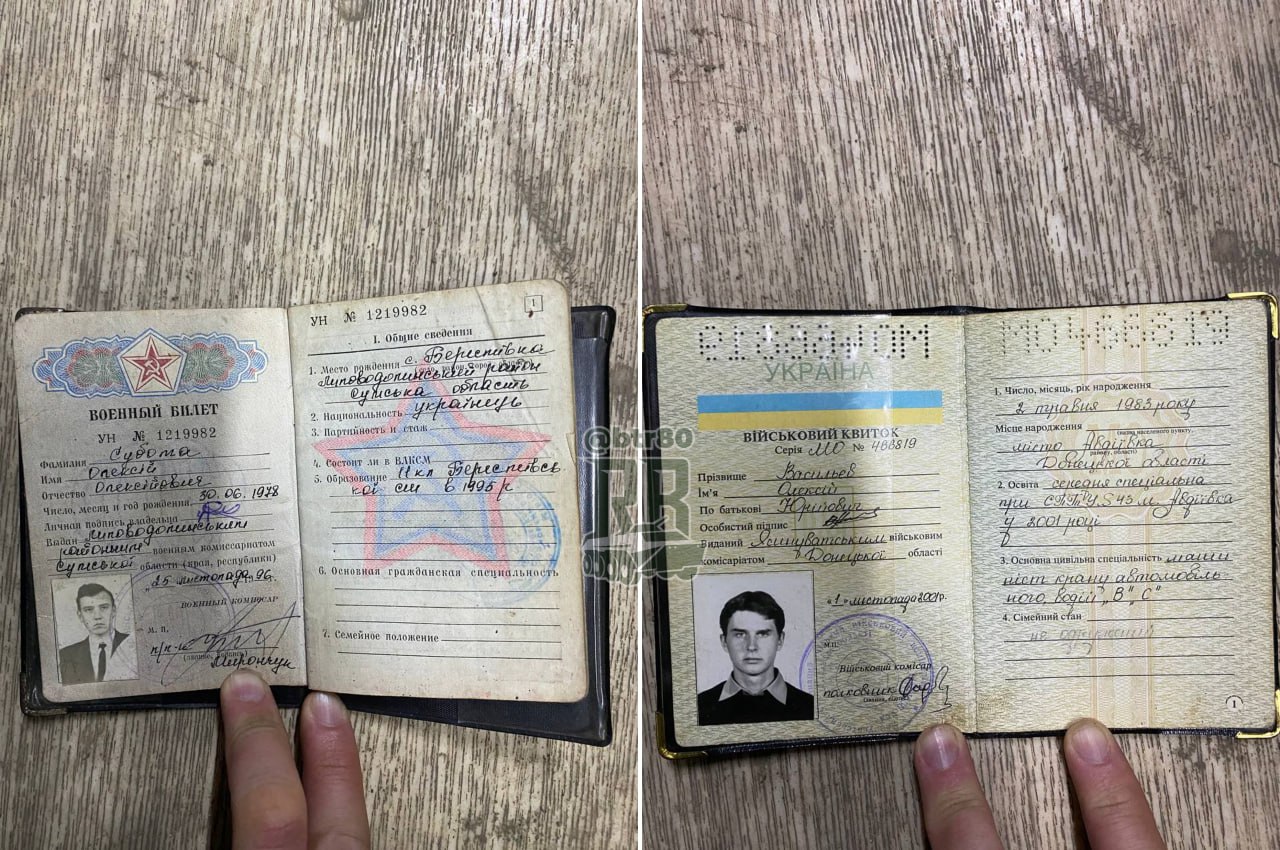 ВОЕННЫЙ БИЛЕТ
УН № 1219982
Фамилия Субота
Имя Олексій
Отчество Олексійович
Число, месяц и год рождения 30. 06. 1978
Личная подпись владельца
Выдан Липоводолинським
районним военным комиссариатом
Сумської области (края, республики)
„25 листопада 96.
ВОЕННЫЙ КОМИССАР
М. П.
п/п-к
Мирончук
УН № 1219982
1
I. Общие сведения
1. Место рождения с. Берестівка
Липоводолинський район
Сумська область
2. Национальность українець
3. Партийность и стаж
4. Состоит ли в ВЛКСМ
5. Образование 11 кл Берестівсь
кої сш в 1995 р
6. Основная гражданская специальность
7. Семейное положение
@btr80
RR
УКРАЇНА
ВІЙСЬКОВИЙ КВИТОК
Серія МО № 488819
Прізвище Васильєв
Ім'я Олексій
По батькові Юрійович
Особистий підпис
Виданий Ясинуватським військовим
комісаріатом Донецької області
„1" листопада 2001р.
М.П.
Військовий комісар
полковник
1. Число, місяць, рік народження
2 травня 1983 року
Місце народження
місто Авдіївка
Донецької області
2. Освіта середня спеціальна
при м. Авдіївка
у 2001 році
3. Основна цивільна спеціальність маши
ніст крану автомобіль
ного, водій „В" „С"
4. Сімейний стан
не одружений
1